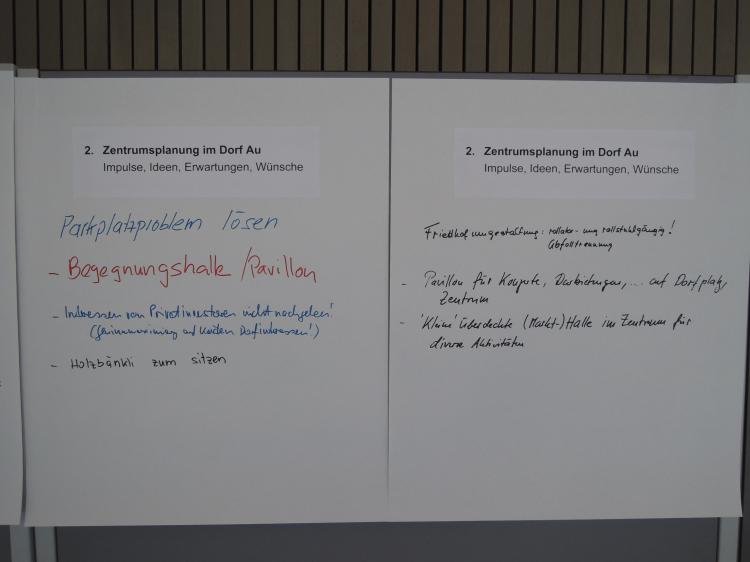 2. Zentrumsplanung im Dorf Au
Impulse, Ideen, Erwartungen, Wünsche
Parkplatzproblem lösen
- Begegnungshalle / Pavillon
- Interessen von Privatinvestoren nicht nachgeben!
(Gewinnmaximierung auf Kosten Dorfinteressen!)
- Holzbänkli zum sitzen
2. Zentrumsplanung im Dorf Au
Impulse, Ideen, Erwartungen, Wünsche
Friedhofumgestaltung: rollator- und rollstuhlgängig!
Abfalltrennung
- Pavillon für Konzerte, Darbietungen, ... auf Dorfplatz,
Zentrum
- 'Kleine' überdeckte (Markt-)Halle im Zentrum für
diverse Aktivitäten